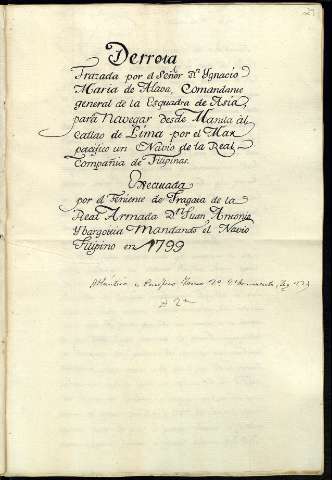 Derrota
Trazada por el Señor Dn. Ygnacio
Maria de Alava, Comandante
general de la Esquadra de Asia,
para Navegar desde Manila al
Callao de Lima por el Mar
pacifico un Navio de la Real
Compañia de Filipinas.
Executada
por el Teniente de Fragata de la
Real Armada Dn. Juan Antonio
Ybargoitia Mandando el Navio
Filipino en 1799
Atlántico e Pacífico Tomo
A 2a